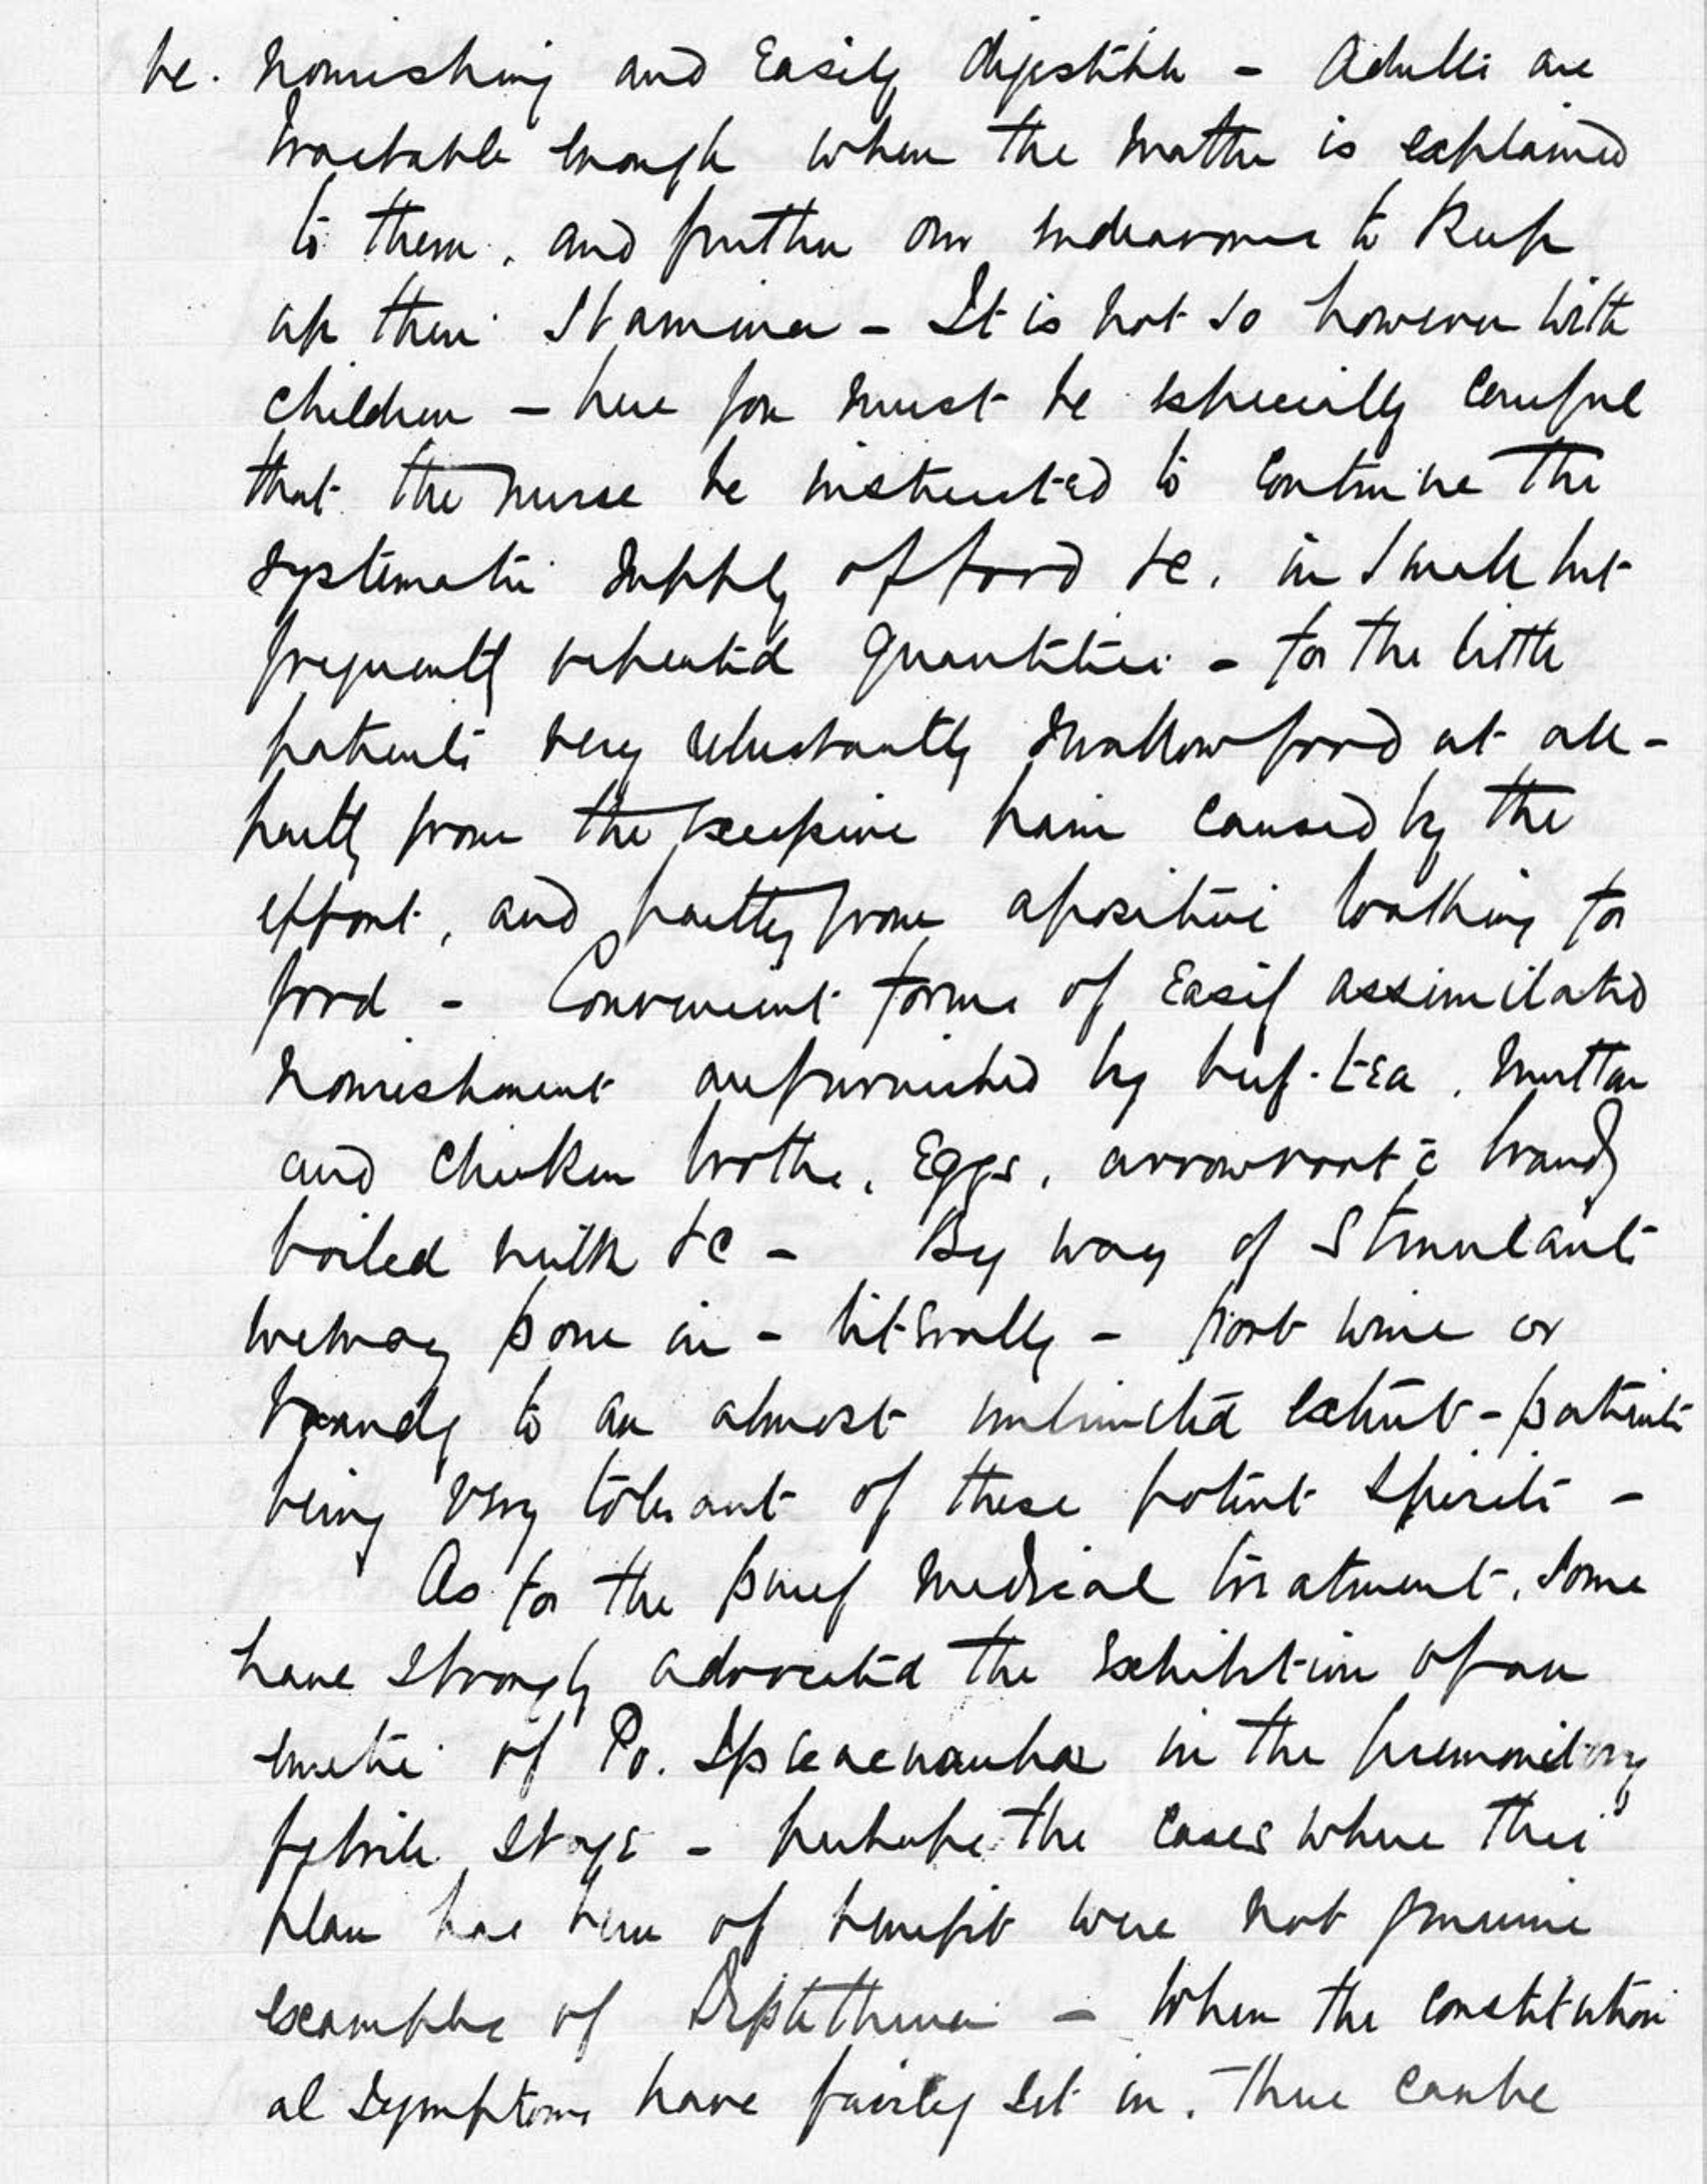 be. nourishing and Easily digestible - Adults are
tractable enough when the matter is explained
to them, and further our endeavours to keep
up their stamina - It is not so however with
children - here you must be especially careful
that the nurse be instructed to continue the
systematic supply of food &c. in small but
frequently repeated quantities - for the little
patients very reluctantly swallow food at all -
partly from the excessive pain caused by the
effort, and partly from a positive loathing for
food - Convenient forms of Easily assimilated
nourishment are furnished by beef-tea, mutton
and chicken broths, Eggs, arrowroot c̄ brandy
boiled milk &c - By way of Stimulants
we may pour in - literally - port wine or
brandy to an almost unlimited extent - patients
being very tolerant of these potent spirits -
As for the purely medical treatment, some
have strongly advocated the Exhibition of an
emetic of Po. Ipecacuanhae in the premonitory
febrile stage - perhaps the cases where this
plan has been of benefit were not genuine
examples of Diphtheria - When the constitution
al symptoms have fairly set in, there can be